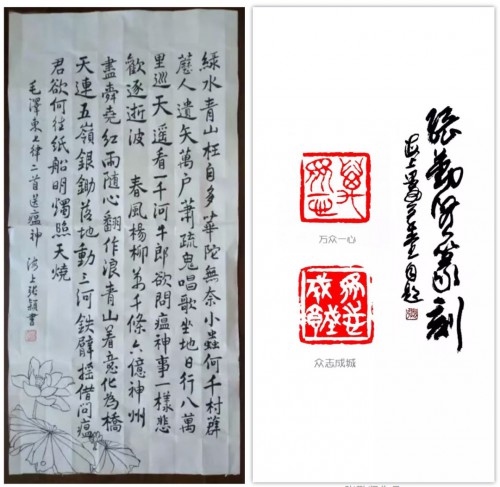 綠水青山枉自多華陀無奈小蟲何千村薜
人遺矢萬户蕭疏鬼唱歌坐地日行八萬
里巡天遥看一千河牛郎欲問瘟神事一樣悲
歡逐逝波 春風楊柳萬千條六億神州
盡舜堯紅雨隨心翻作浪青山着意化為橋
天連五嶺銀鋤落地動三河鐵臂摇借問瘟
君欲何往紙船明燭照天燒
毛澤東七律二首送瘟神 海上張穎書
張勤賢篆刻
海上
自題
万众一心
众志成城